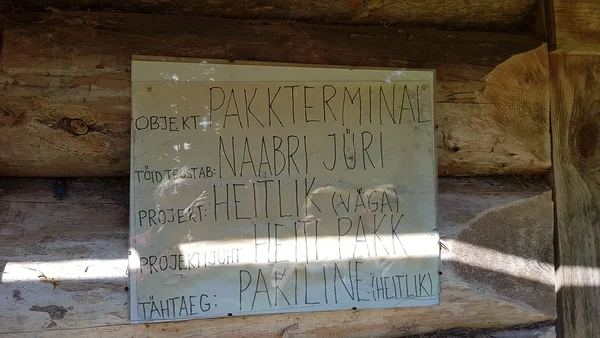 OBJEKT: PAKKTERMINAL
TÖID TEOSTAB: NAABRI JÜRI
PROJEKT: HEITLIK (VÄGA)
PROJEKTIJUHT HEITI PAKK
TÄHTAEG: PAKILINE (HEITLIK)